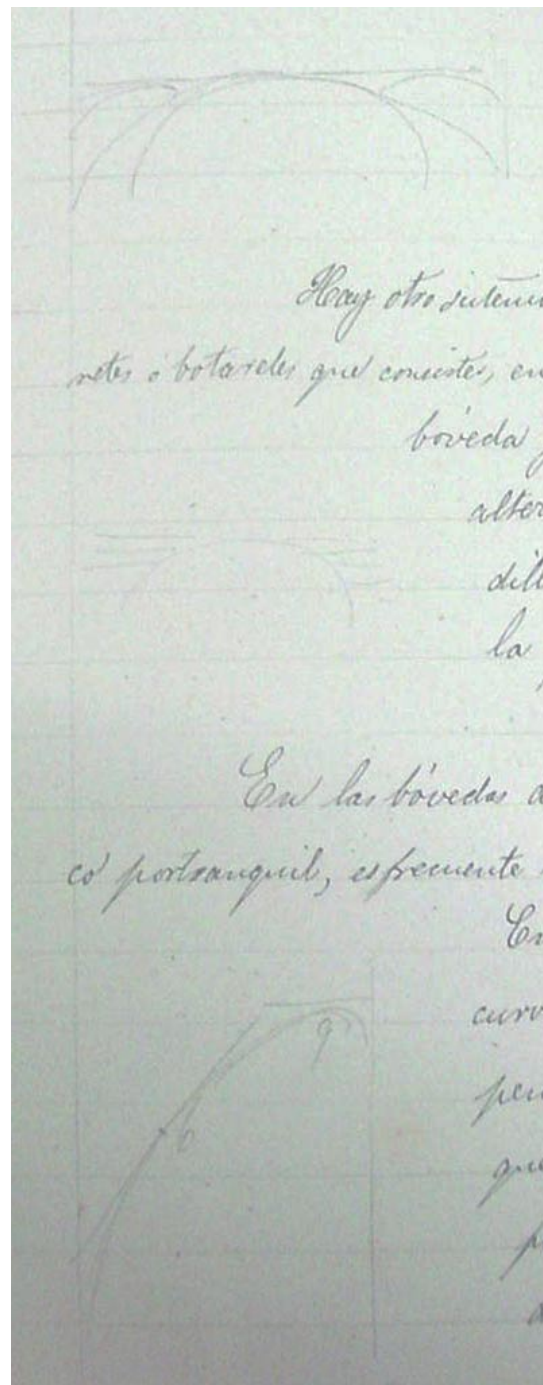 Hay otro sistem
netes ó botareles que consiste, en
bóveda
alter
dill
la
En las bóvedas d
có portranquil, es frecuente
En
curv
pen
que
p
a
9
6